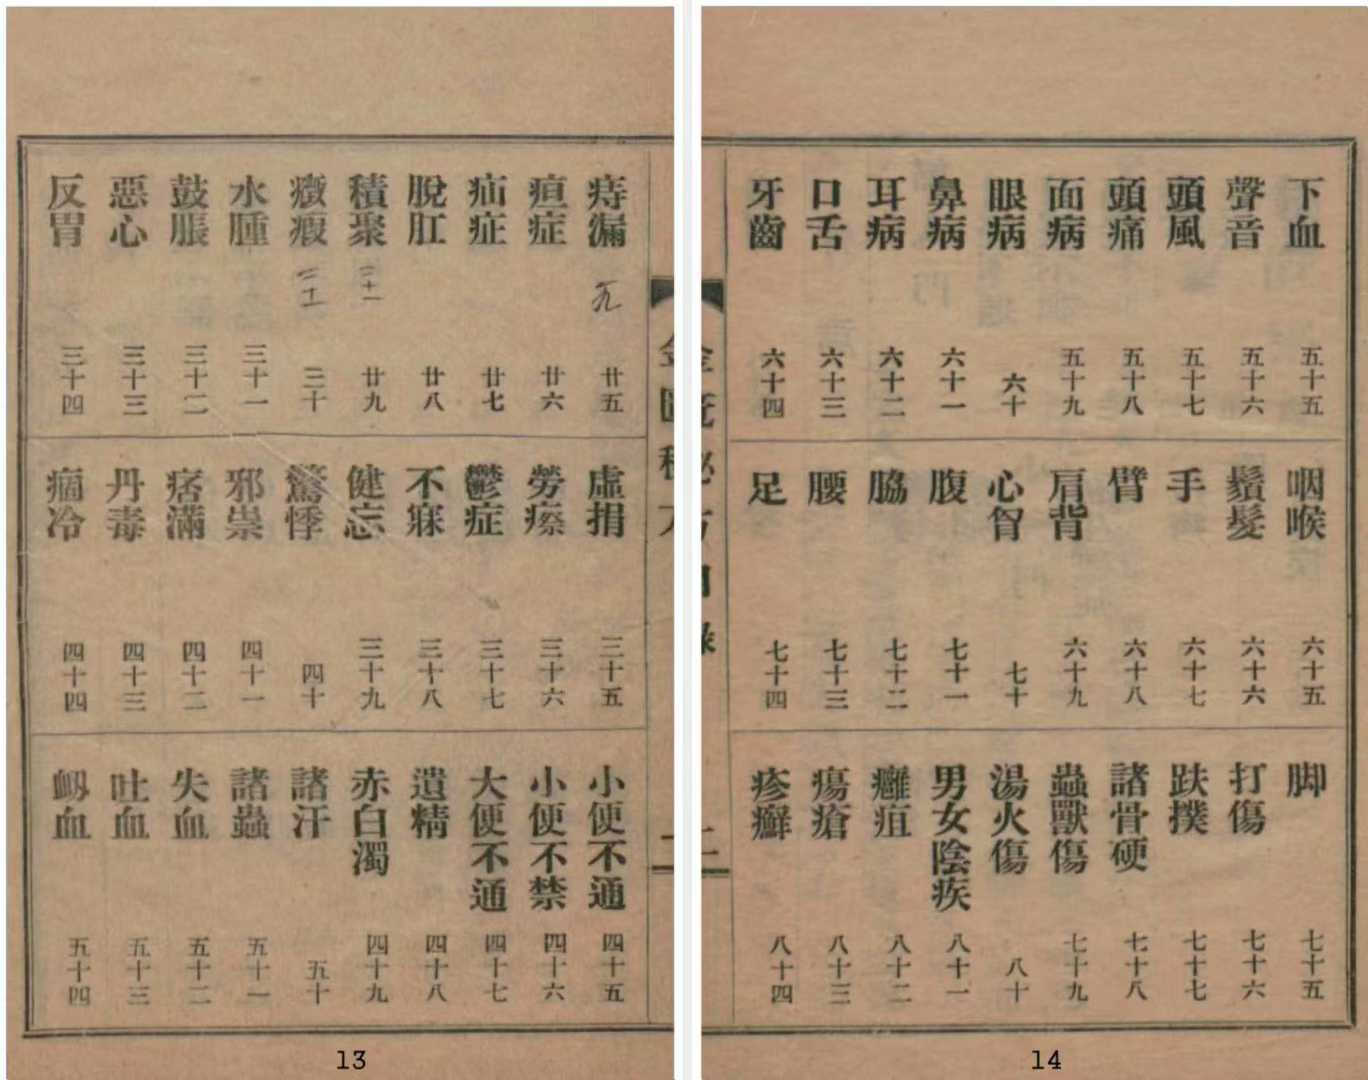 痔漏 廿五
疸症 廿六
疝症 廿七
脫肛 廿八
積聚 三十一 廿九
癥瘕 三十
水腫 三十一
鼓脹 三十二
惡心 三十三
反胃 三十四
虛損 三十五
勞瘵 三十六
鬱症 三十七
不寐 三十八
健忘 三十九
驚悸 四十
邪祟 四十一
痞滿 四十二
丹毒 四十三
痼冷 四十四
小便不通 四十五
小便不禁 四十六
大便不通 四十七
遺精 四十八
赤白濁 四十九
諸汗 五十
諸蟲 五十一
失血 五十二
吐血 五十三
衂血 五十四
13
金匱秘方目錄
二
下血 五十五
聲音 五十六
頭風 五十七
頭痛 五十八
面病 五十九
眼病 六十
鼻病 六十一
耳病 六十二
口舌 六十三
牙齒 六十四
咽喉 六十五
鬚髮 六十六
手 六十七
臂 六十八
肩背 六十九
心胷 七十
腹 七十一
脇 七十二
腰 七十三
足 七十四
脚 七十五
打傷 七十六
跌撲 七十七
諸骨硬 七十八
蟲獸傷 七十九
湯火傷 八十
男女陰疾 八十一
癰疽 八十二
瘍瘡 八十三
疹癬 八十四
14